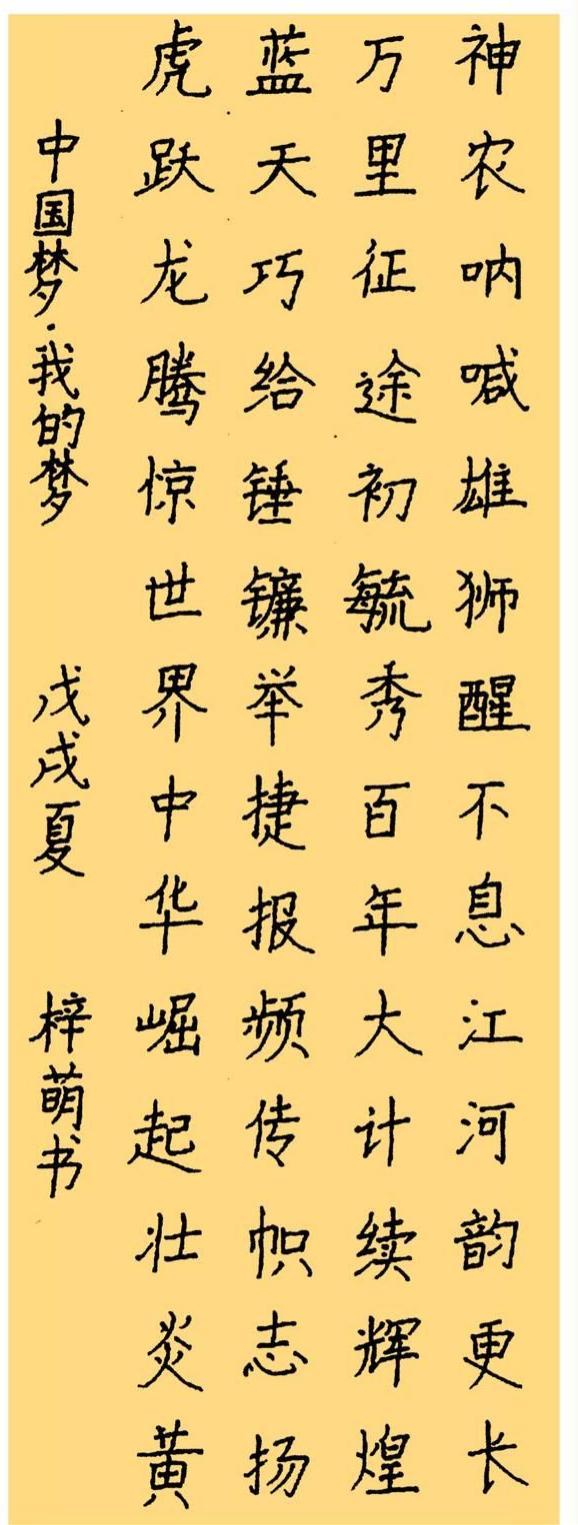 神农呐喊雄狮醒不息江河韵更长
万里征途初毓秀百年大计续辉煌
蓝天巧给锤镰举捷报频传帜志扬
虎跃龙腾惊世界中华崛起壮炎黄
中国梦·我的梦 戊戌夏 梓萌书